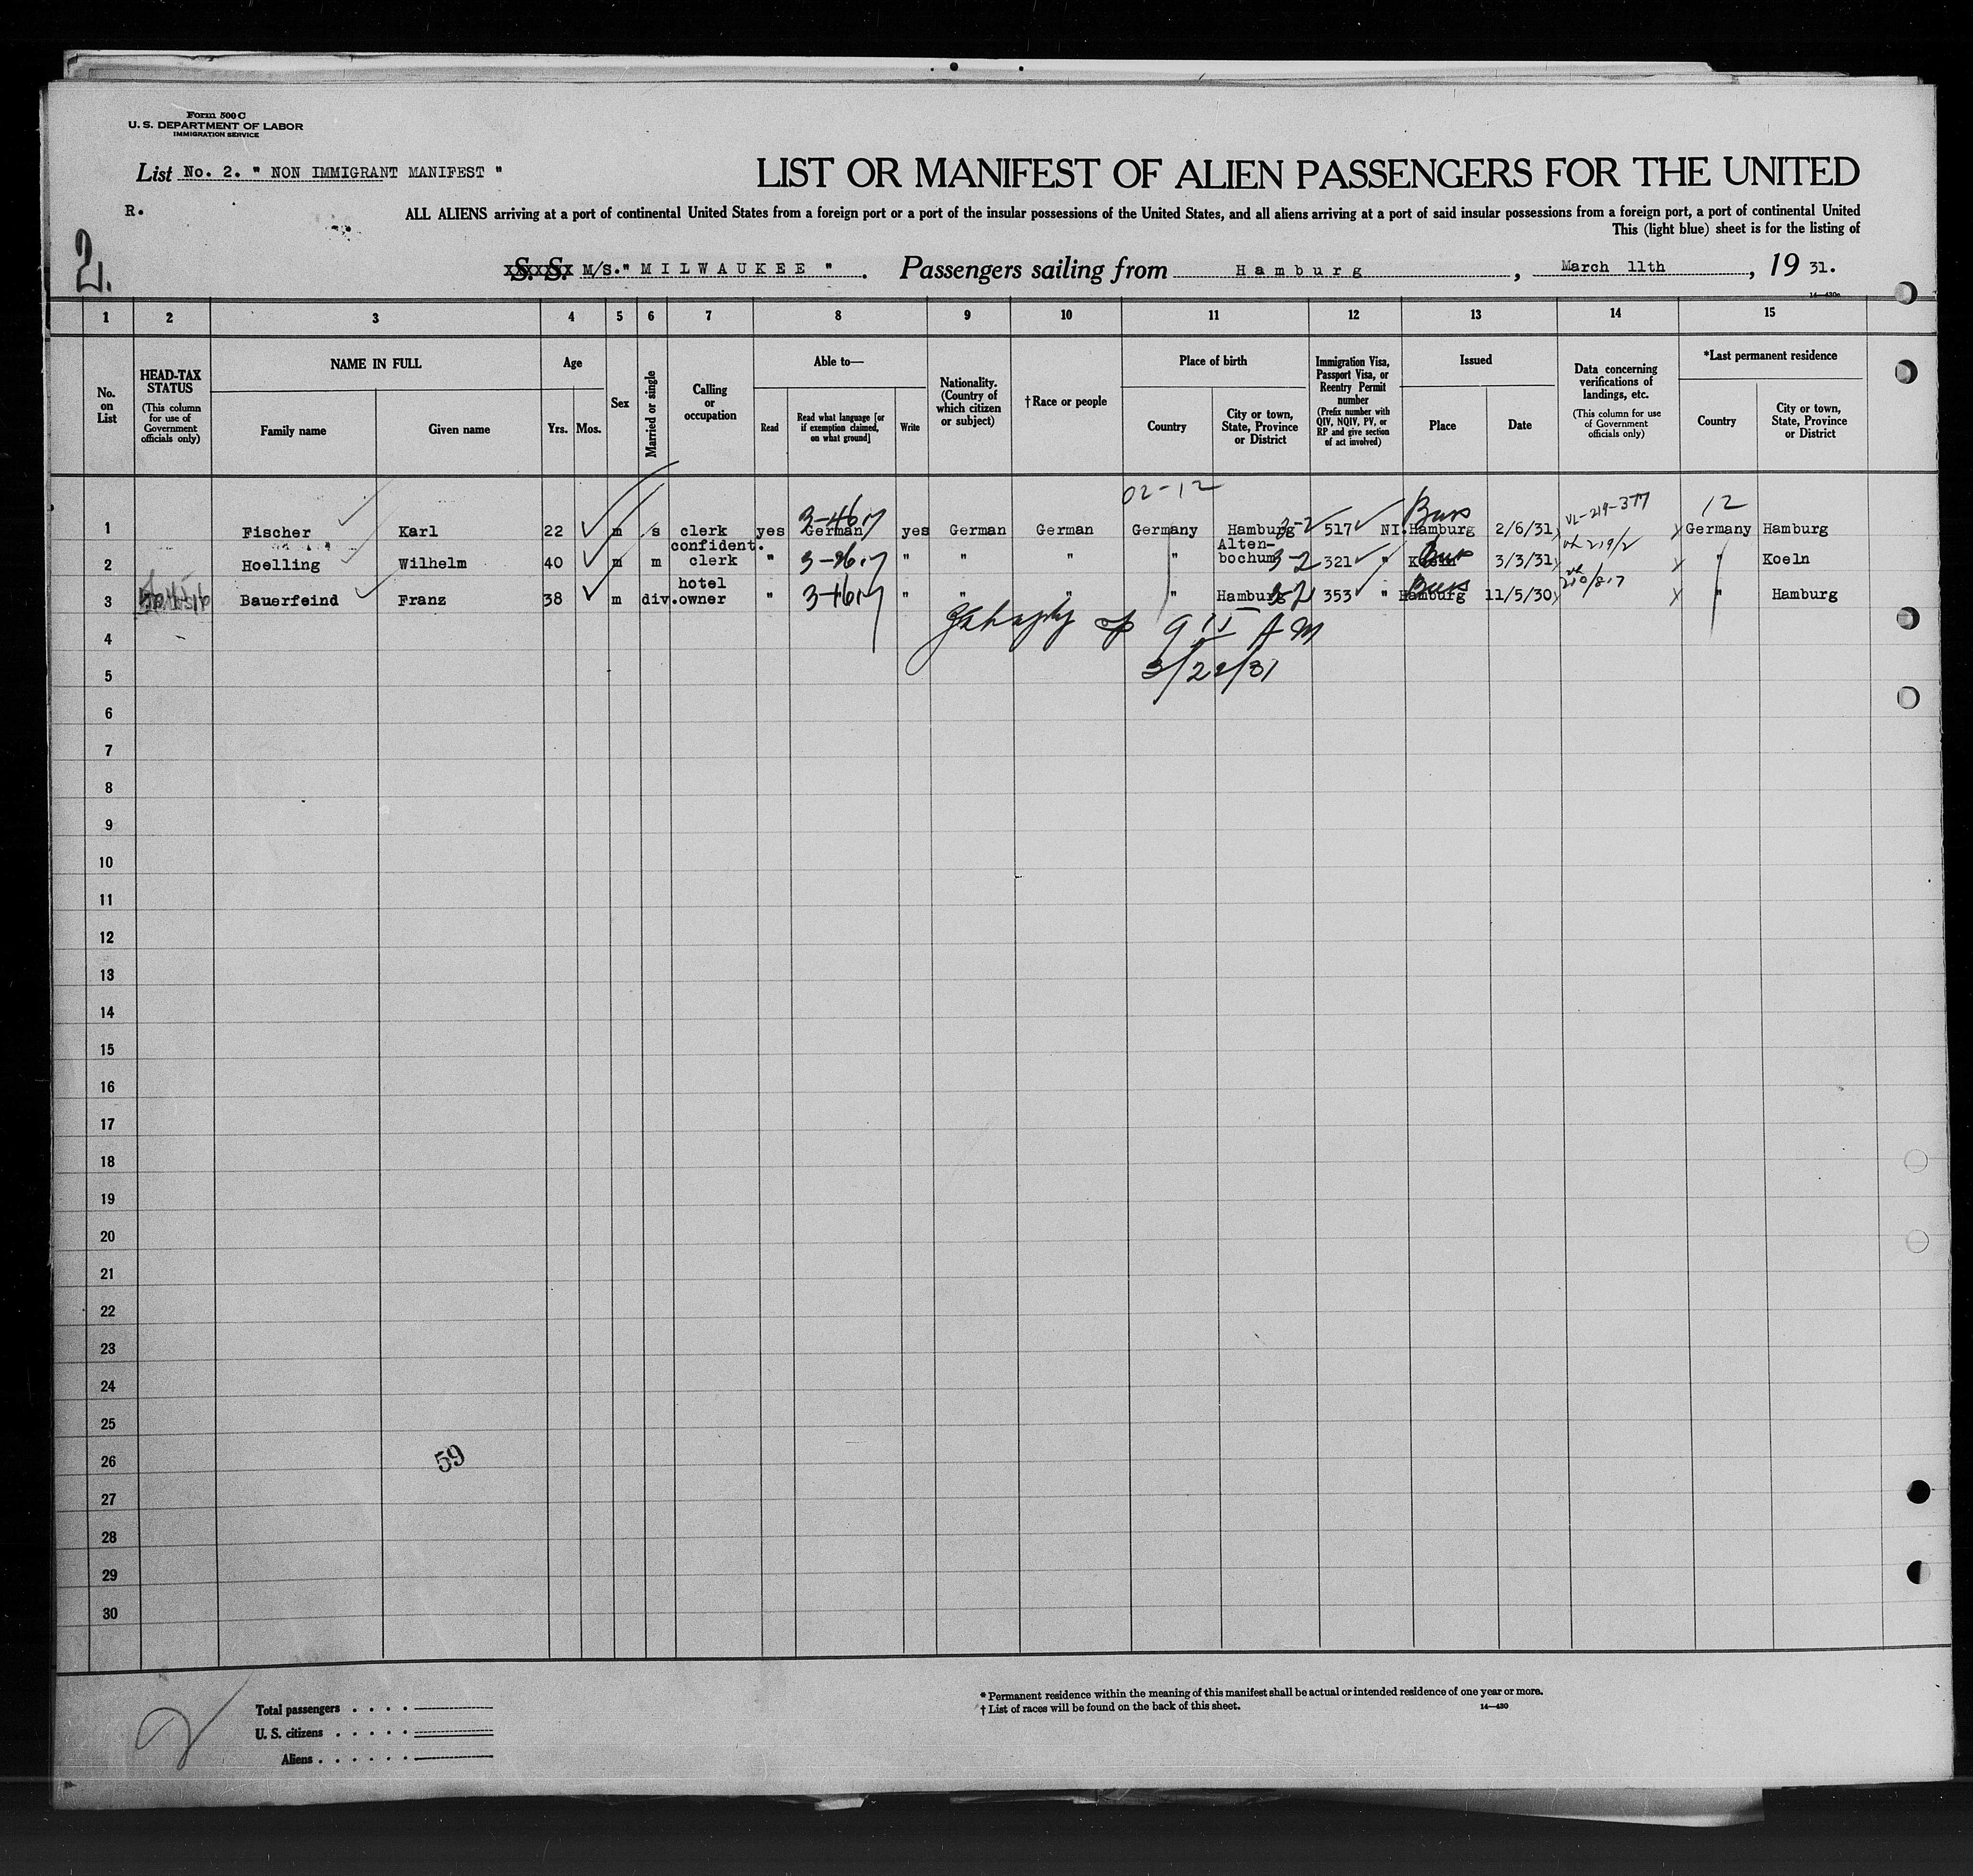 Form 500 C
U. S. DEPARTMENT OF LABOR
IMMIGRATION SERVICE
List No. 2. " NON IMMIGRANT MANIFEST "
LIST OR MANIFEST OF ALIEN PASSENGERS FOR THE UNITED
R.
ALL ALIENS arriving at a port of continental United States from a foreign port or a port of the insular possessions of the United States, and all aliens arriving at a port of said insular possessions from a foreign port, a port of continental United
This (light blue) sheet is for the listing of
2.
S. S. M/S." MILWAUKEE ". Passengers sailing from Hamburg, March 11th, 19 31.
14—430a
1 2 3 4 5 6 7 8 9 10 11 12 13 14 15
No. on List
HEAD-TAX STATUS
(This column for use of Government officials only)
NAME IN FULL
Family name
Given name
Age
Yrs. Mos.
Sex
Married or single
Calling or occupation
Able to—
Read
Read what language [or if exemption claimed, on what ground]
Write
Nationality. (Country of which citizen or subject)
†Race or people
Place of birth
Country
City or town, State, Province or District
Immigration Visa, Passport Visa, or Reentry Permit number
(Prefix number with QIV, NQIV, PV, or RP and give section of act involved)
Issued
Place
Date
Data concerning verifications of landings, etc.
(This column for use of Government officials only)
*Last permanent residence
Country
City or town, State, Province or District
02-12
12
1 Fischer Karl 22 m s clerk yes German yes German German Germany Hamburg 3-2 517 NI. Hamburg 2/6/31 VL-219-377 Germany Hamburg
2 Hoelling Wilhelm 40 m m confident. clerk " " " " " Alten-bochum 3-2 321 " Koeln 3/3/31 " Koeln
3 Bauerfeind Franz 38 m div. hotel owner " " " " " Hamburg 3-2 353 " Hamburg 11/5/30 " Hamburg
4
9 15 AM
5
3/22/31
6
7
8
9
10
11
12
13
14
15
16
17
18
19
20
21
22
23
24
25
26
59
27
28
29
30
2
Total passengers . . . .
U. S. citizens . . . . .
Aliens . . . . . .
* Permanent residence within the meaning of this manifest shall be actual or intended residence of one year or more.
† List of races will be found on the back of this sheet.
14—430